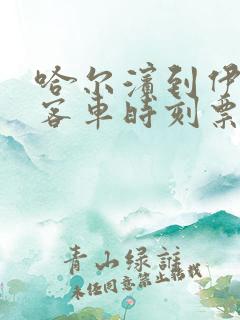 哈尔滨到伊
客车时刻票
青山绿谁
未经同意禁止转载